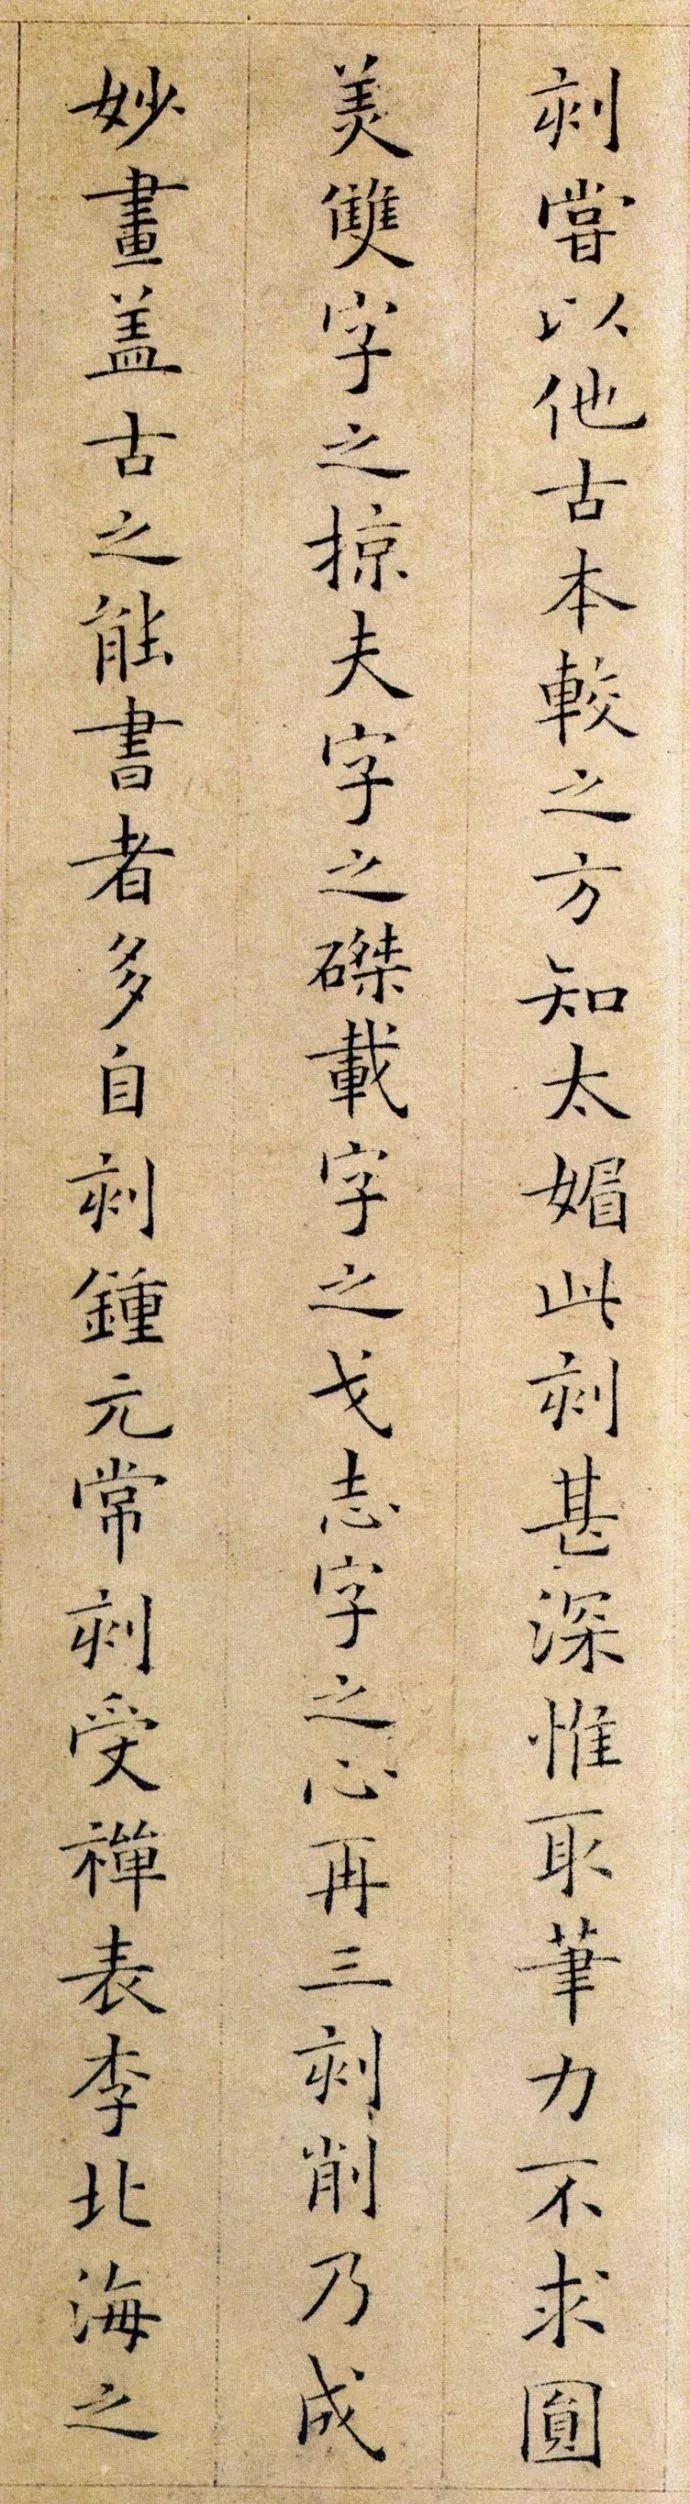 刻嘗以他古本較之方知太媚此刻甚深惟取筆力不求圓
美雙字之掠夫字之磔載字之戈志字之心再三刻削乃成
妙畫盖古之能書者多自刻鍾元常刻受禪表李北海之